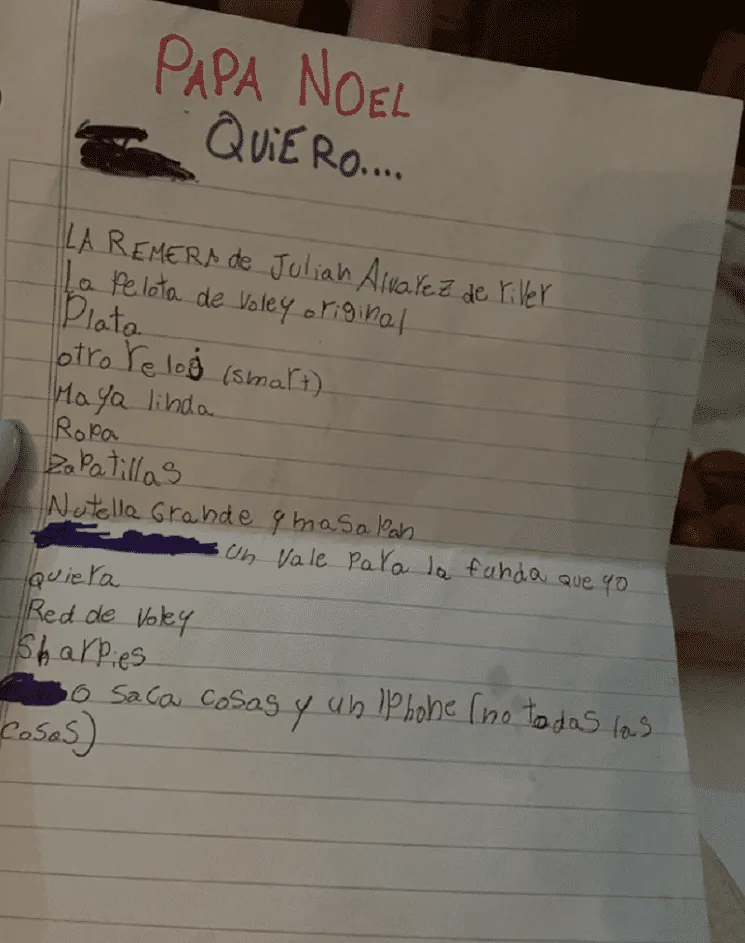 PAPA NOEL
QUiERO....
LA REMERA de Julian Alvarez de river
La Pelota de voley original
Plata
otro reloj (smart)
Maya linda
Ropa
Zapatillas
Nutella Grande y masapan
un vale para la funda que yo
quiera
Red de voley
Sharpies
o saca cosas y un IPhone (no todas las
cosas)